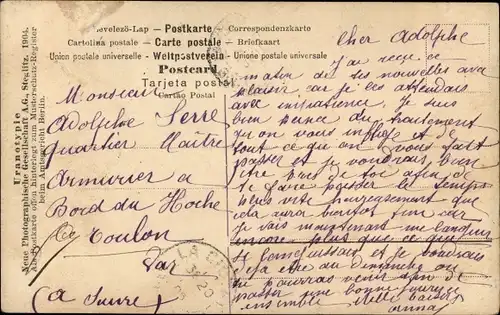 Levelező-Lap — Postkarte — Correspondenzkarte
Cartolina postale — Carte postale — Briefkaart
Union postale universelle — Weltpostverein — Unione postale universale
Postcard
Tarjeta postal
Cartão Postal
Neue Photographische Gesellschaft A.G., Steglitz, 1904.
Als Postkarte offen hinterlegt zum Musterschutz-Register
beim Amtsgericht Berlin.
Monsieur
Adolphe Serre
quartier Maître
Armurier a
Bord du Hoche
Toulon
Var
(a suivre)
Cher Adolphe
J'ai reçu ce
matin de tes nouvelles avec
plaisir car je les attendais
avec impatience. Je suis
bien du traitement
qu'on vous inflige et de
tout ce qu'on vous fait
passer et je voudrais bien
être de toi afin de
te faire passer le temps
plus vite heureusement que
cela aura bientot fini car
je vais maintenant me
encore plus que ce que
je et je voudrais
être du dimanche ou
tu pourras venir afin de
passer une bonne journée
ensemble Mille baisers
Anna